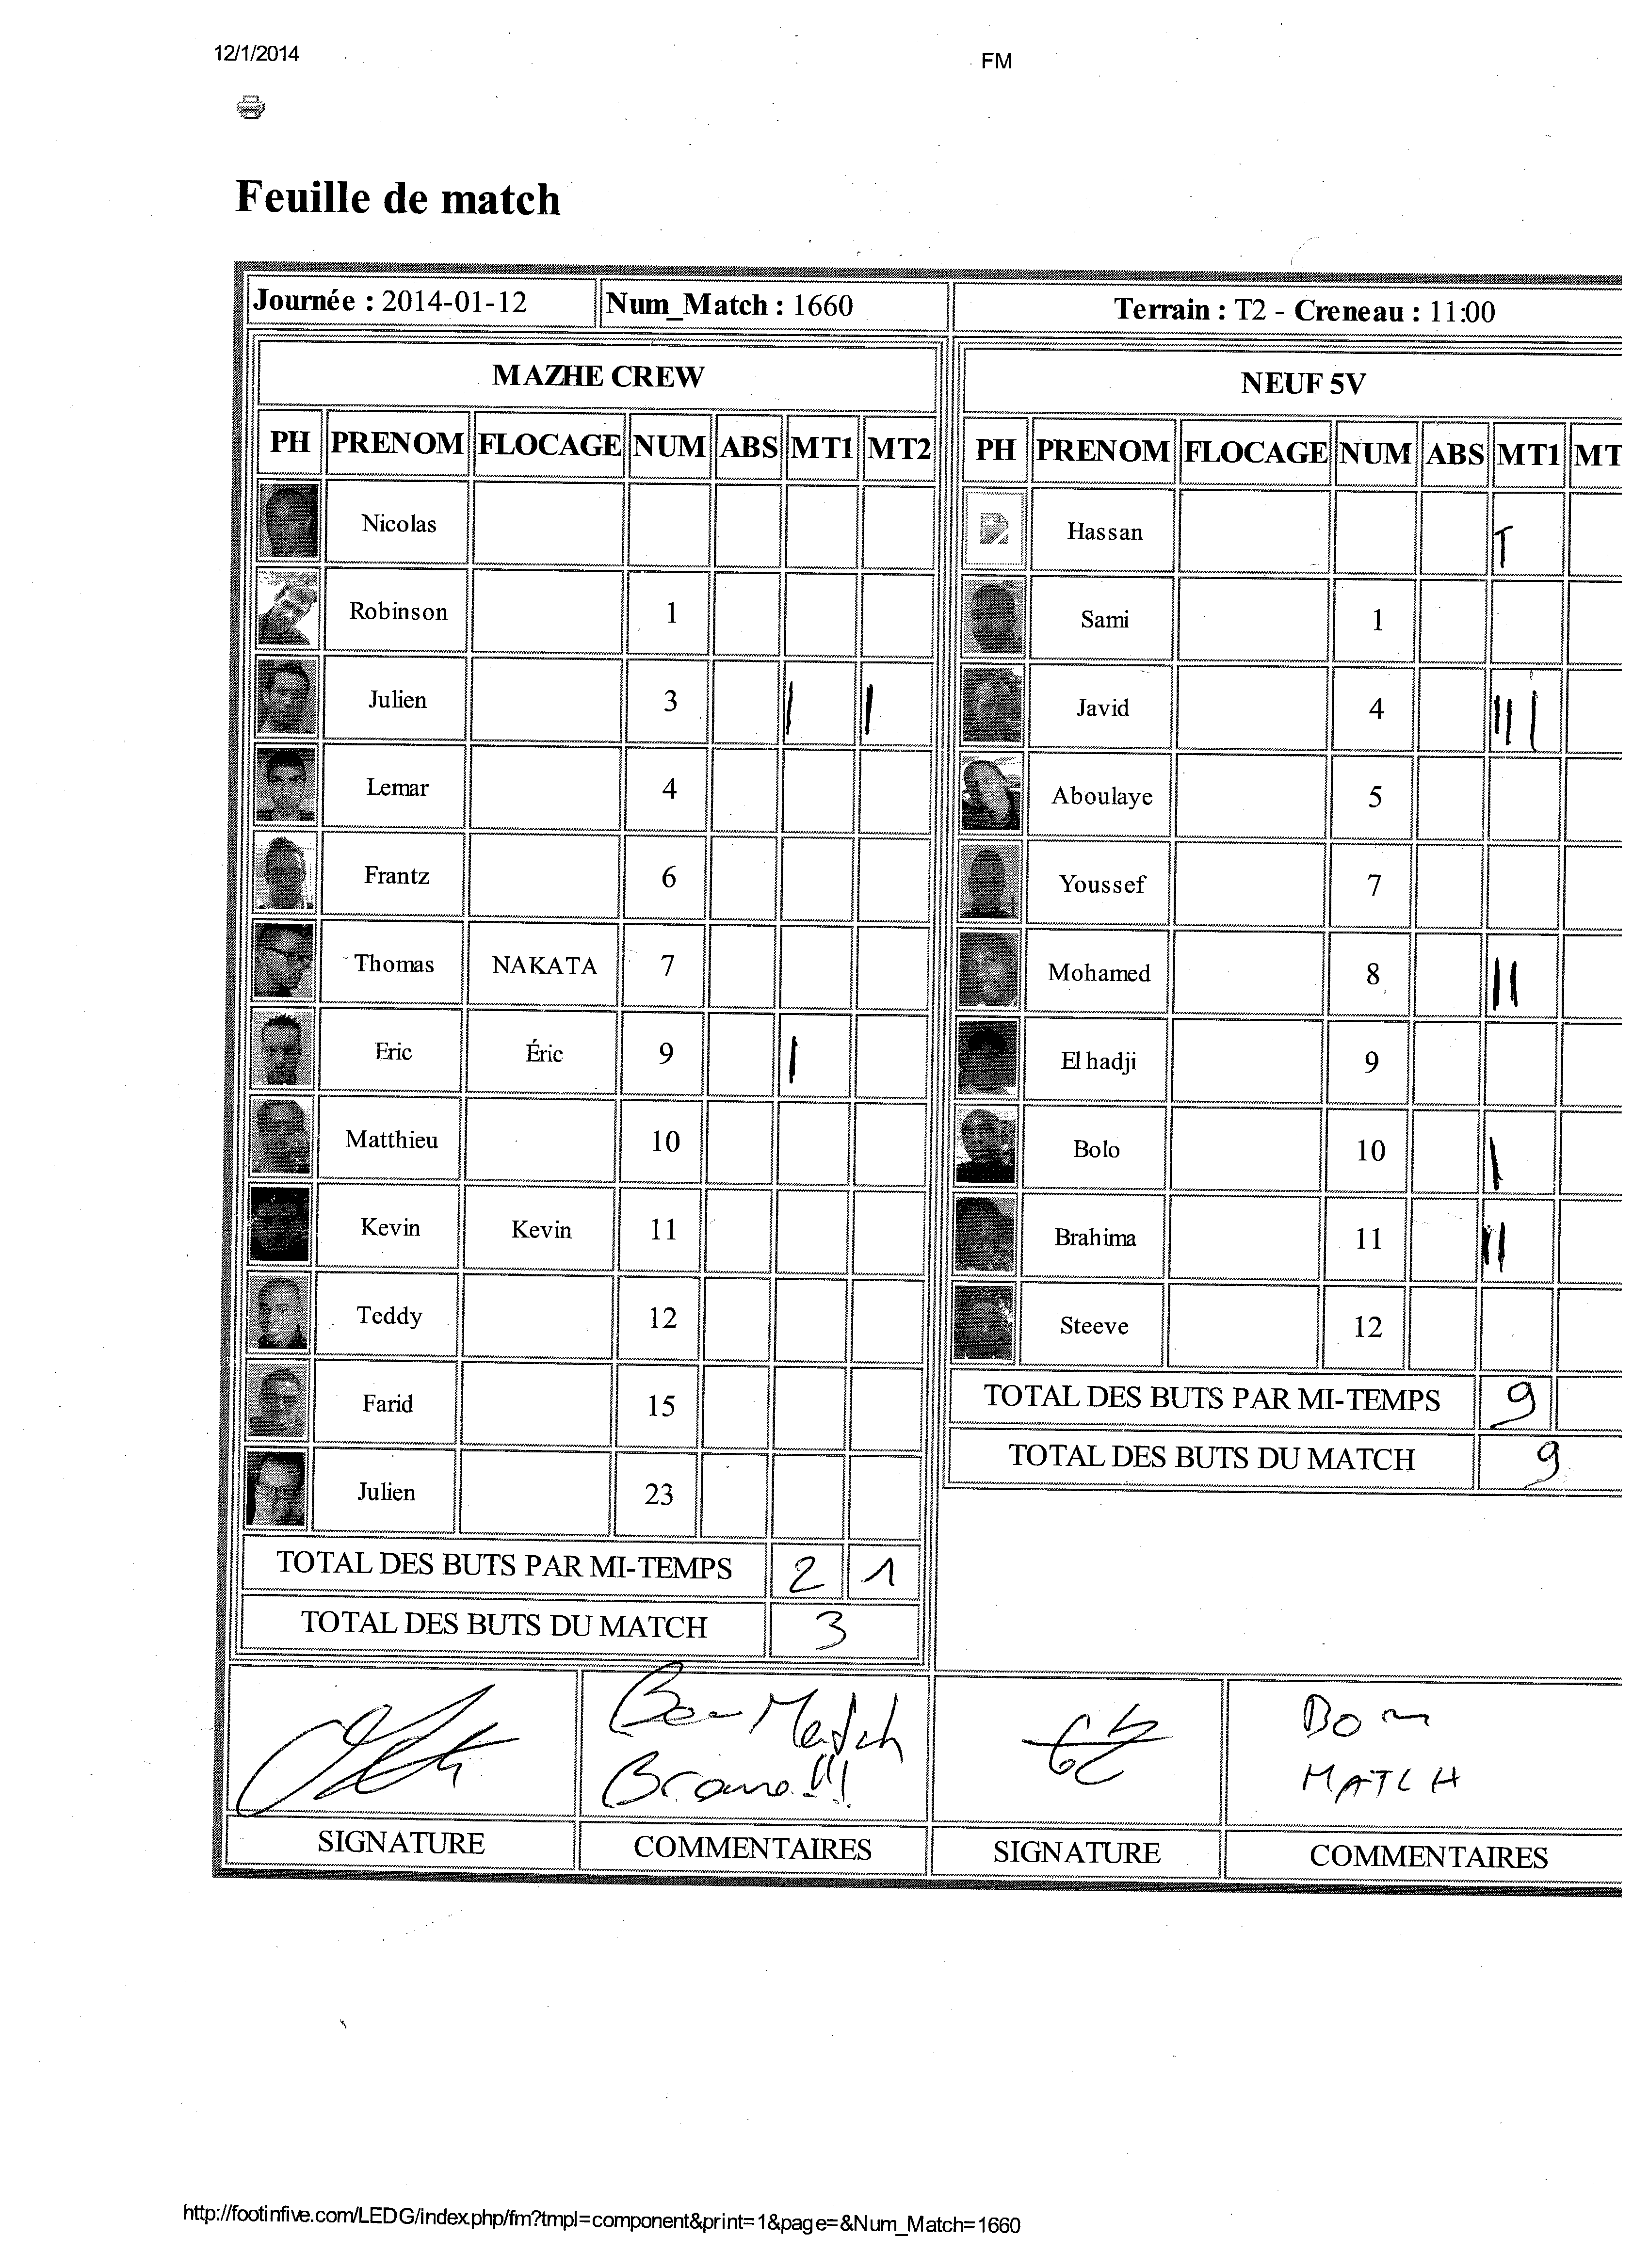 12/1/2014 FM
Feuille de match
Journée : 2014-01-12 Num_Match : 1660 Terrain : T2 - Creneau : 11:00
MAZHE CREW
PH PRENOM FLOCAGE NUM ABS MT1 MT2
Nicolas
Robinson 1
Julien 3 | |
Lemar 4
Frantz 6
Thomas NAKATA 7
Eric Éric 9 |
Matthieu 10
Kevin Kevin 11
Teddy 12
Farid 15
Julien 23
TOTAL DES BUTS PAR MI-TEMPS 2 1
TOTAL DES BUTS DU MATCH 3
NEUF 5V
PH PRENOM FLOCAGE NUM ABS MT1 MT
Hassan
Sami 1
Javid 4 |||
Aboulaye 5
Youssef 7
Mohamed 8 ||
El hadji 9
Bolo 10 |
Brahima 11 ||
Steeve 12
TOTAL DES BUTS PAR MI-TEMPS 9
TOTAL DES BUTS DU MATCH 9
Bon Match
Bravo !!!
SIGNATURE COMMENTAIRES
Bon
MATCH
SIGNATURE COMMENTAIRES
http://footinfive.com/LEDG/index.php/fm?tmpl=component&print=1&page=&Num_Match=1660